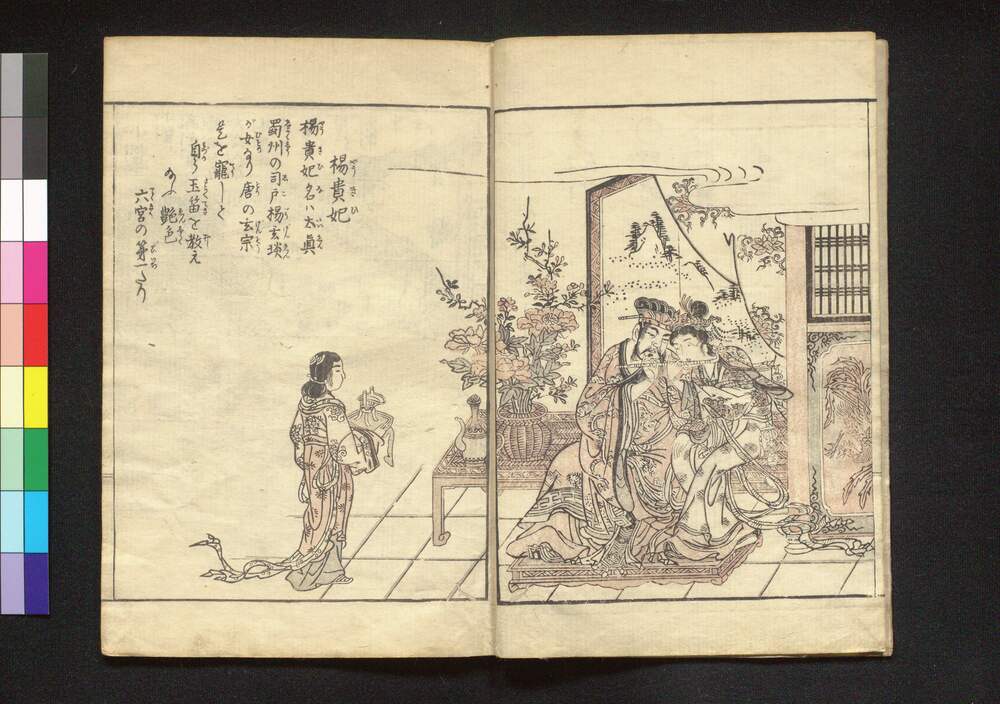 楊貴妃
楊貴妃名ハ太眞
蜀州の司戸楊玄琰
が女なり唐の玄宗
是を寵しと
自ら玉笛を教え
艶色
六宮の第一たり